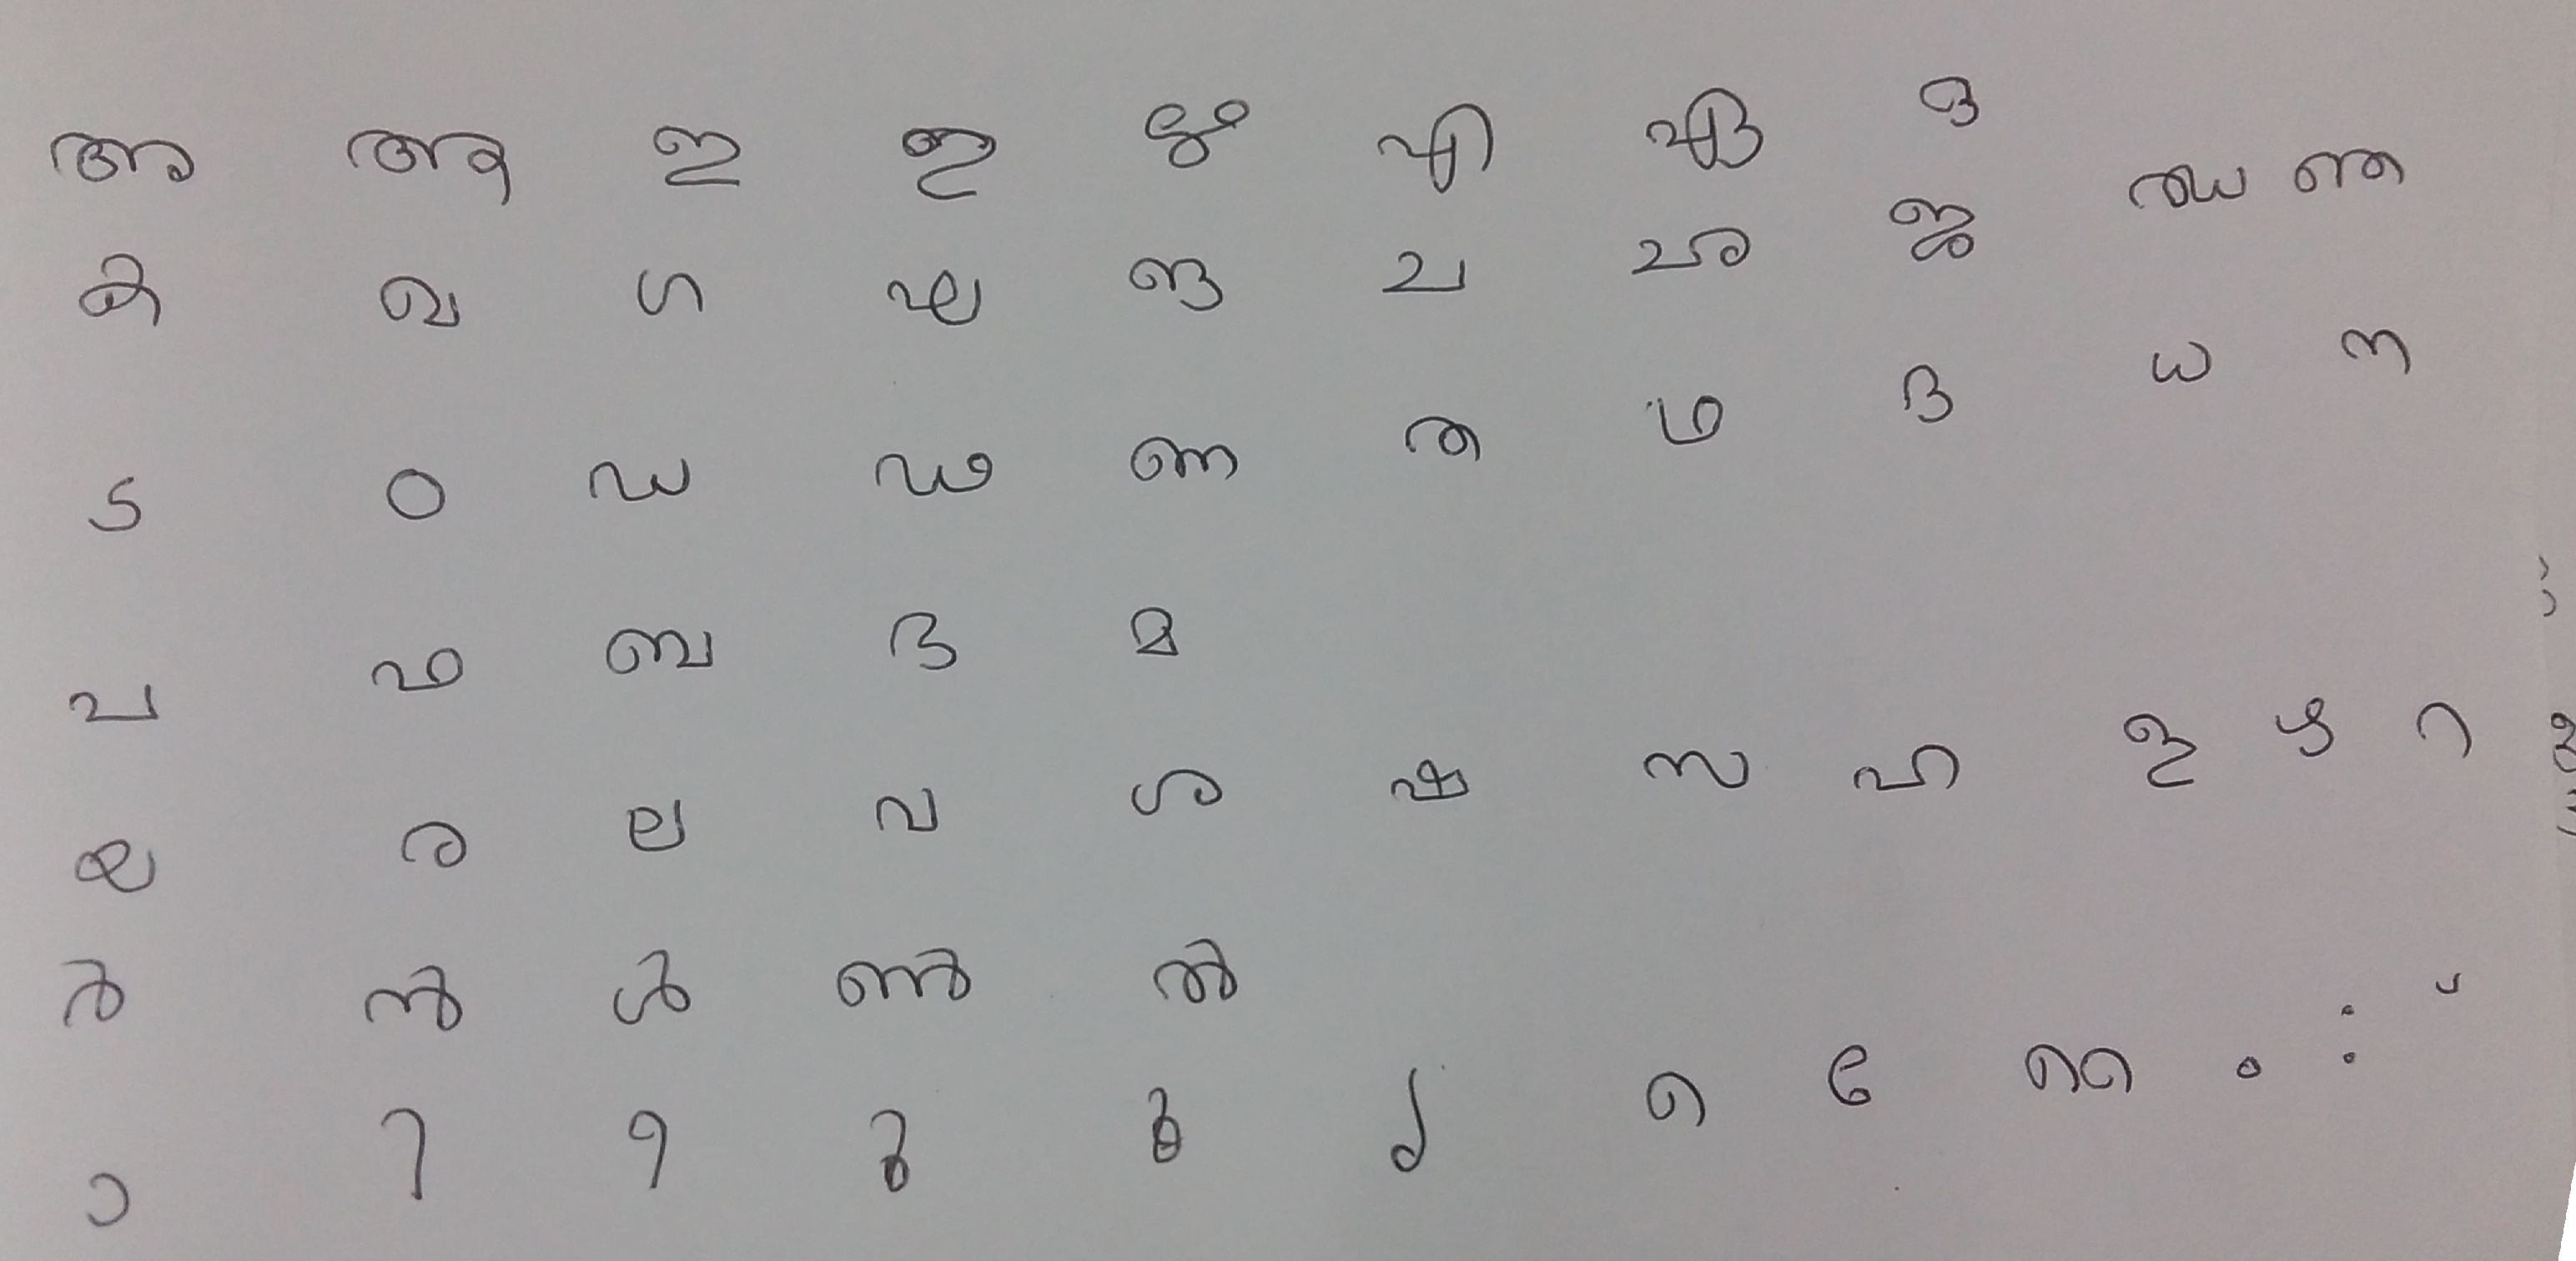 അ ആ ഇ ഉ ഋ എ ഏ ഒ
ക ഖ ഗ ഘ ങ ച ഛ ജ ഝ ഞ
ട ഠ ഡ ഢ ണ ത ഥ ദ ധ ന
പ ഫ ബ ദ മ
യ ര ല വ ശ ഷ സ ഹ ള ഴ റ
ർ ൻ ൾ ൺ ൽ
ാ ി ീ ു ൂ ൃ െ േ ൈ ം ഃ ്